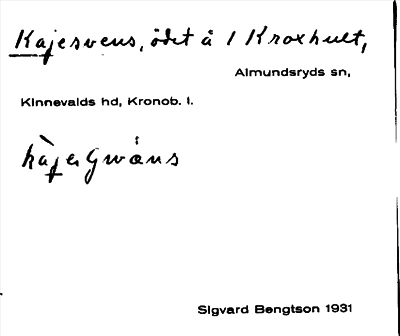 Kajesvens, ödet å 1 Kroxhult,
Almundsryds sn,
Kinnevalds hd, Kronob. l.
Sigvard Bengtson 1931